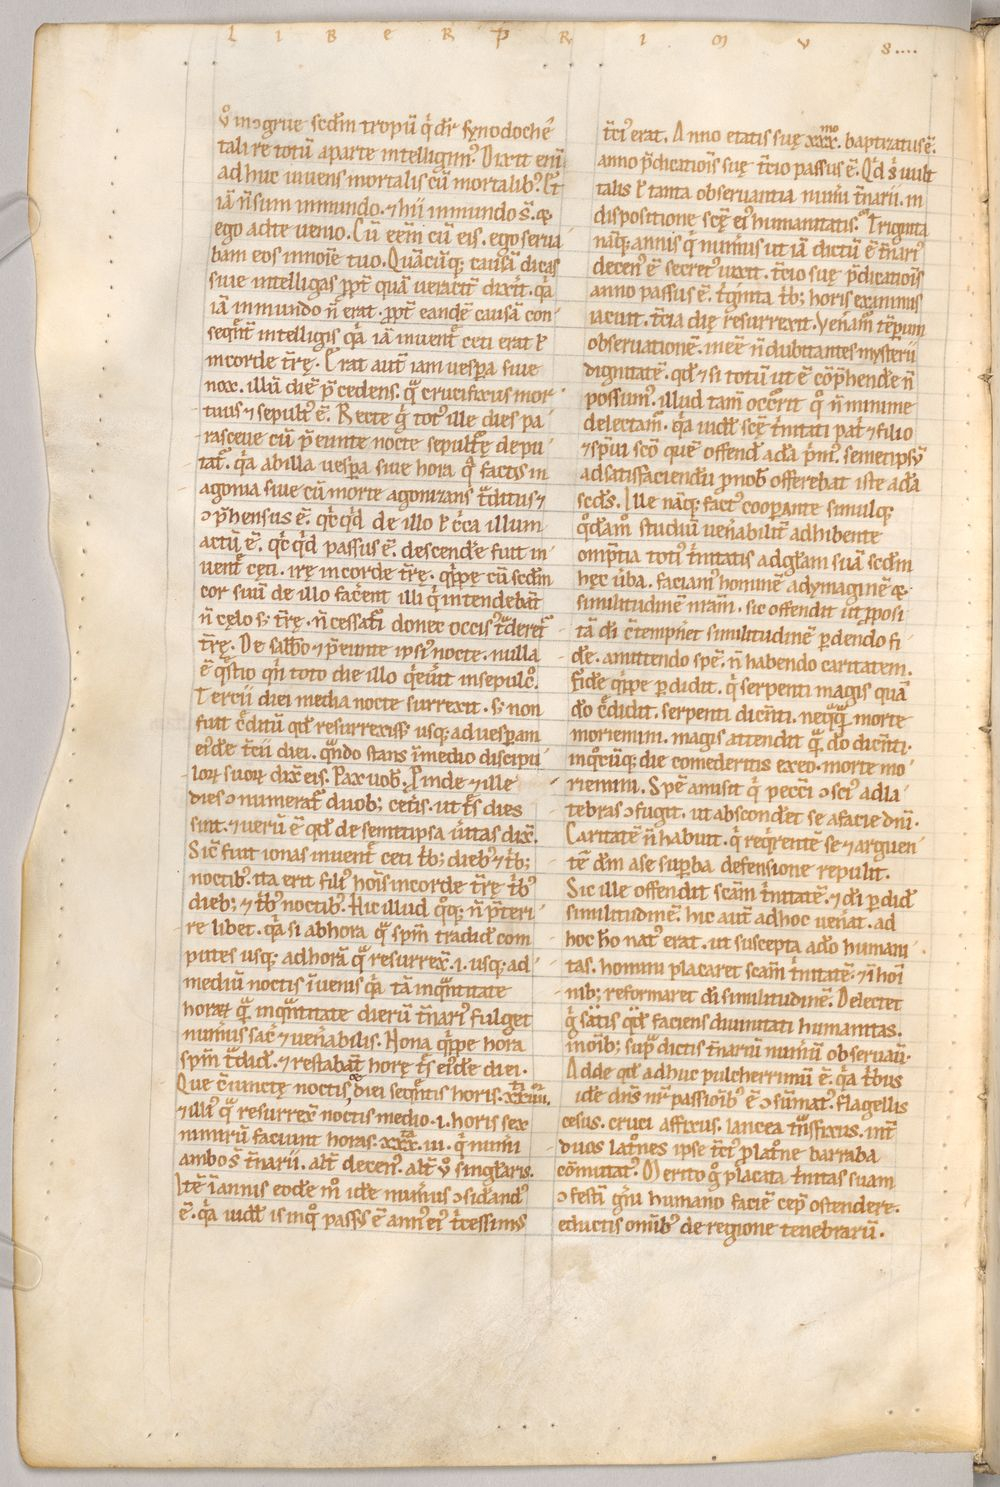 L I B E R P̄ R I M V S....
ẘ inↄgrue scd̄m tropū q̇ dr̄ synodochē
tali re totū aparte intelligim᷒. Dixit eni᷒
adhuc uiuens mortalis cū mortalib᷒. Et
iā n̄ sum inmundo. ⁊ hii inmundo s̄. &
ego adte uenio. Cū eēm cū eis. ego serua
bam eos innoīe tuo. Quācūq; causā dicas
siue intelligas ppt̄ quā ueracit̄ dixit̄. qa
iā inmundo n̄ erat. ppt̄ eandē causā con
seqn̄t̄ intelligis qa iā inuent̄ ceti erat ł
incorde t̄rę. Erat aut̄ iam uespa siue
nox. illū diē p̄cedens. qa crucifixus mor
tuus ⁊ sepult᷒ ē. Recte g̊ tot᷒ ille dies pa
rasceue cū p̄eunte nocte sepultr̄ę depu
tat᷒. qa abilla uespa siue hora q̄ fact᷒ in
agonia siue cū morte agonizans t̄ditus ⁊
ↄp̄hensus ē. qc̄qd̄ de illo ł c̄ca illum
actū ē. qc̄qd̄ passus ē. descendē fuit in
uent̄ ceti. ire incorde t̄rę. qp̄pe cū scd̄m
cor suū de illo facēnt illi q̇ intendebāt
n̄ cęlo s; t̄rę. n̄ cessat̄i donec occis᷒ t̄deret̄
t̄rę. De sabb̄o ⁊ p̄eunte ipsī nocte. nulla
ē qs̄tio qn̄ toto die illo qeuīt insepulc̊.
Tercii diei media nocte surrexit. s; non
fuit c̄ditū qd̄ resurrexiss; usq; ad uespam
ei᷒dē t̄cii diei. qn̄do stans īmedio discipu
lorꝝ suorꝝ dix̄ eis. Pax uob̄. Proinde ⁊ ille
dies ↄnumerat᷒ duob; cet̄is. ut t̄s dies
sint. ⁊ uerū ē qd̄ de semetipsa ūitas dix̄.
Sic̄ fuit ionas inuent̄ ceti t̄b; dieb᷒ ⁊ t̄b;
noctib᷒. ita erit fili᷒ hoīs incorde t̄rę t̄b᷒
dieb; ⁊ t̄b᷒ noctib᷒. Hic illud q̊q; n̄ p̄teri
re libet. qa si abhora qa spm̄ tradid̄ com
putes usq; ad horā qa resurrex̄. i. usq; ad
mediū noctis īuenis qa tā inqn̄titate
horarꝝ qa inqn̄titate dierū t̄nari᷒ fulget
num̄us sac̄ ⁊ uen̄abilis. Nona qp̄pe hora
spm̄ t̄did̄. ⁊ restabāt horę t̄s ei᷒dē diei.
Que c̄iunctę noctis & diei seqn̄tis horis. xxiiii.
⁊ illi᷒ qa resurrex̄ noctis medio. i. horis sex
nimirū faciunt horas. xxx. iii. q̇ num̄i
ambo s̄ t̄narii. alt̄ decen᷒. alt̄ ů singlaris.
Itē īannis eodē m̊ idē num̄us ↄsidand᷒
ē. qa uidł is inq̊ pass᷒ ē ann᷒ ei᷒ t̄cessimus
t̄ci᷒ erat. Anno etatis suę xxx.mo baptizatus ē.
anno p̄dicatiōis suę t̄cio passus ē. Qd̄ s̄ uult
talis ł tanta obseruantia num̄i t̄narii. in
dispositione scę ei᷒ humanitatis. Triginta
nāq; annis q̇ num̄us ut iā dictū ē t̄nari᷒
decen᷒ ē secret᷒ uixit. t̄cio suę p̄dicatiōis
anno passus ē. t̄ginta t̄b; horis exanimis
iacuit. t̄cia die resurrexit. Venam᷒ tēpum
obseruationē. inee n̄ dubitantes mysterii
dignitatē. qd̄ ⁊ si totū ut ē cōp̄hendē n̄
possum᷒. illud tam̄ occ̄rit q̊ n̄ minime
delectam᷒. qa uidł scę t̄nitati pat̄i ⁊ filio
⁊ spīui scō quē offend̄ adā p̄m᷒. semetipsū
ad satisfaciendū pnob̄ offerebat iste adā
scd̄s. Ille nāq; fact᷒ coopante simulq;
q̊dam̊ studiū uen̄abilit̄ adhibente
omp̄tia toti᷒ t̄nitatis adglam suā scd̄m
hęc ūba. faciam᷒ hominē adymaginē &
similitudinē nram̄. sic offendit ut pposi
tā di c̄tempn̄et similitudinē pdendo fi
dē. amittendo spē. n̄ habendo caritatem.
Fidē qp̄pe pdidit. q̇ serpenti magis quā
do c̄didit. serpenti dicn̄ti. neqqa morte
moriemini. magis attendit qa do dicn̄ti.
inqcūq; die comederitis exeo. morte mo
riemini. Spē amisit q̇ pecc̄i ↄsci᷒ adla
tebras ↄfugit. ut absconder̄ se afacie dnī.
Caritatē n̄ habuit. q̇ req̄rentē se ⁊ arguen
tē dm̄ ase supba defensione repulit.
Sic ille offendit scam̄ t̄nitatē. ⁊ di pdid̄
similitudinē. hic aut̄ adhoc uen̄at. ad
hoc ho nat᷒ erat. ut suscepta ado humani
tas. homini placaret scam̄ t̄nitatē. ⁊ hoī
nib; reformaret di similitudinē. Delectet
g̊ satis qd̄ faciens diuinitati humanitas.
inoīb; sup̄dictis t̄nariū num̄ū obseruau̅.
Adde qd̄ adhuc pulcherrimū ē. qa t̄bus
idē dns̄ nr̄ passiōib᷒ ē ↄsūmat᷒. flagellis
cesus. cruci affixus. lancea tn̄sfixus. int̄
duos latrōnes ipse t̄ci᷒ platrōne barraba
cōmutat᷒. Merito g̊ placata t̄nitas suam
ↄfestī gn̄i humano faciē cep̄ ostendere.
eductis omīb᷒ de regione tenebrarū.